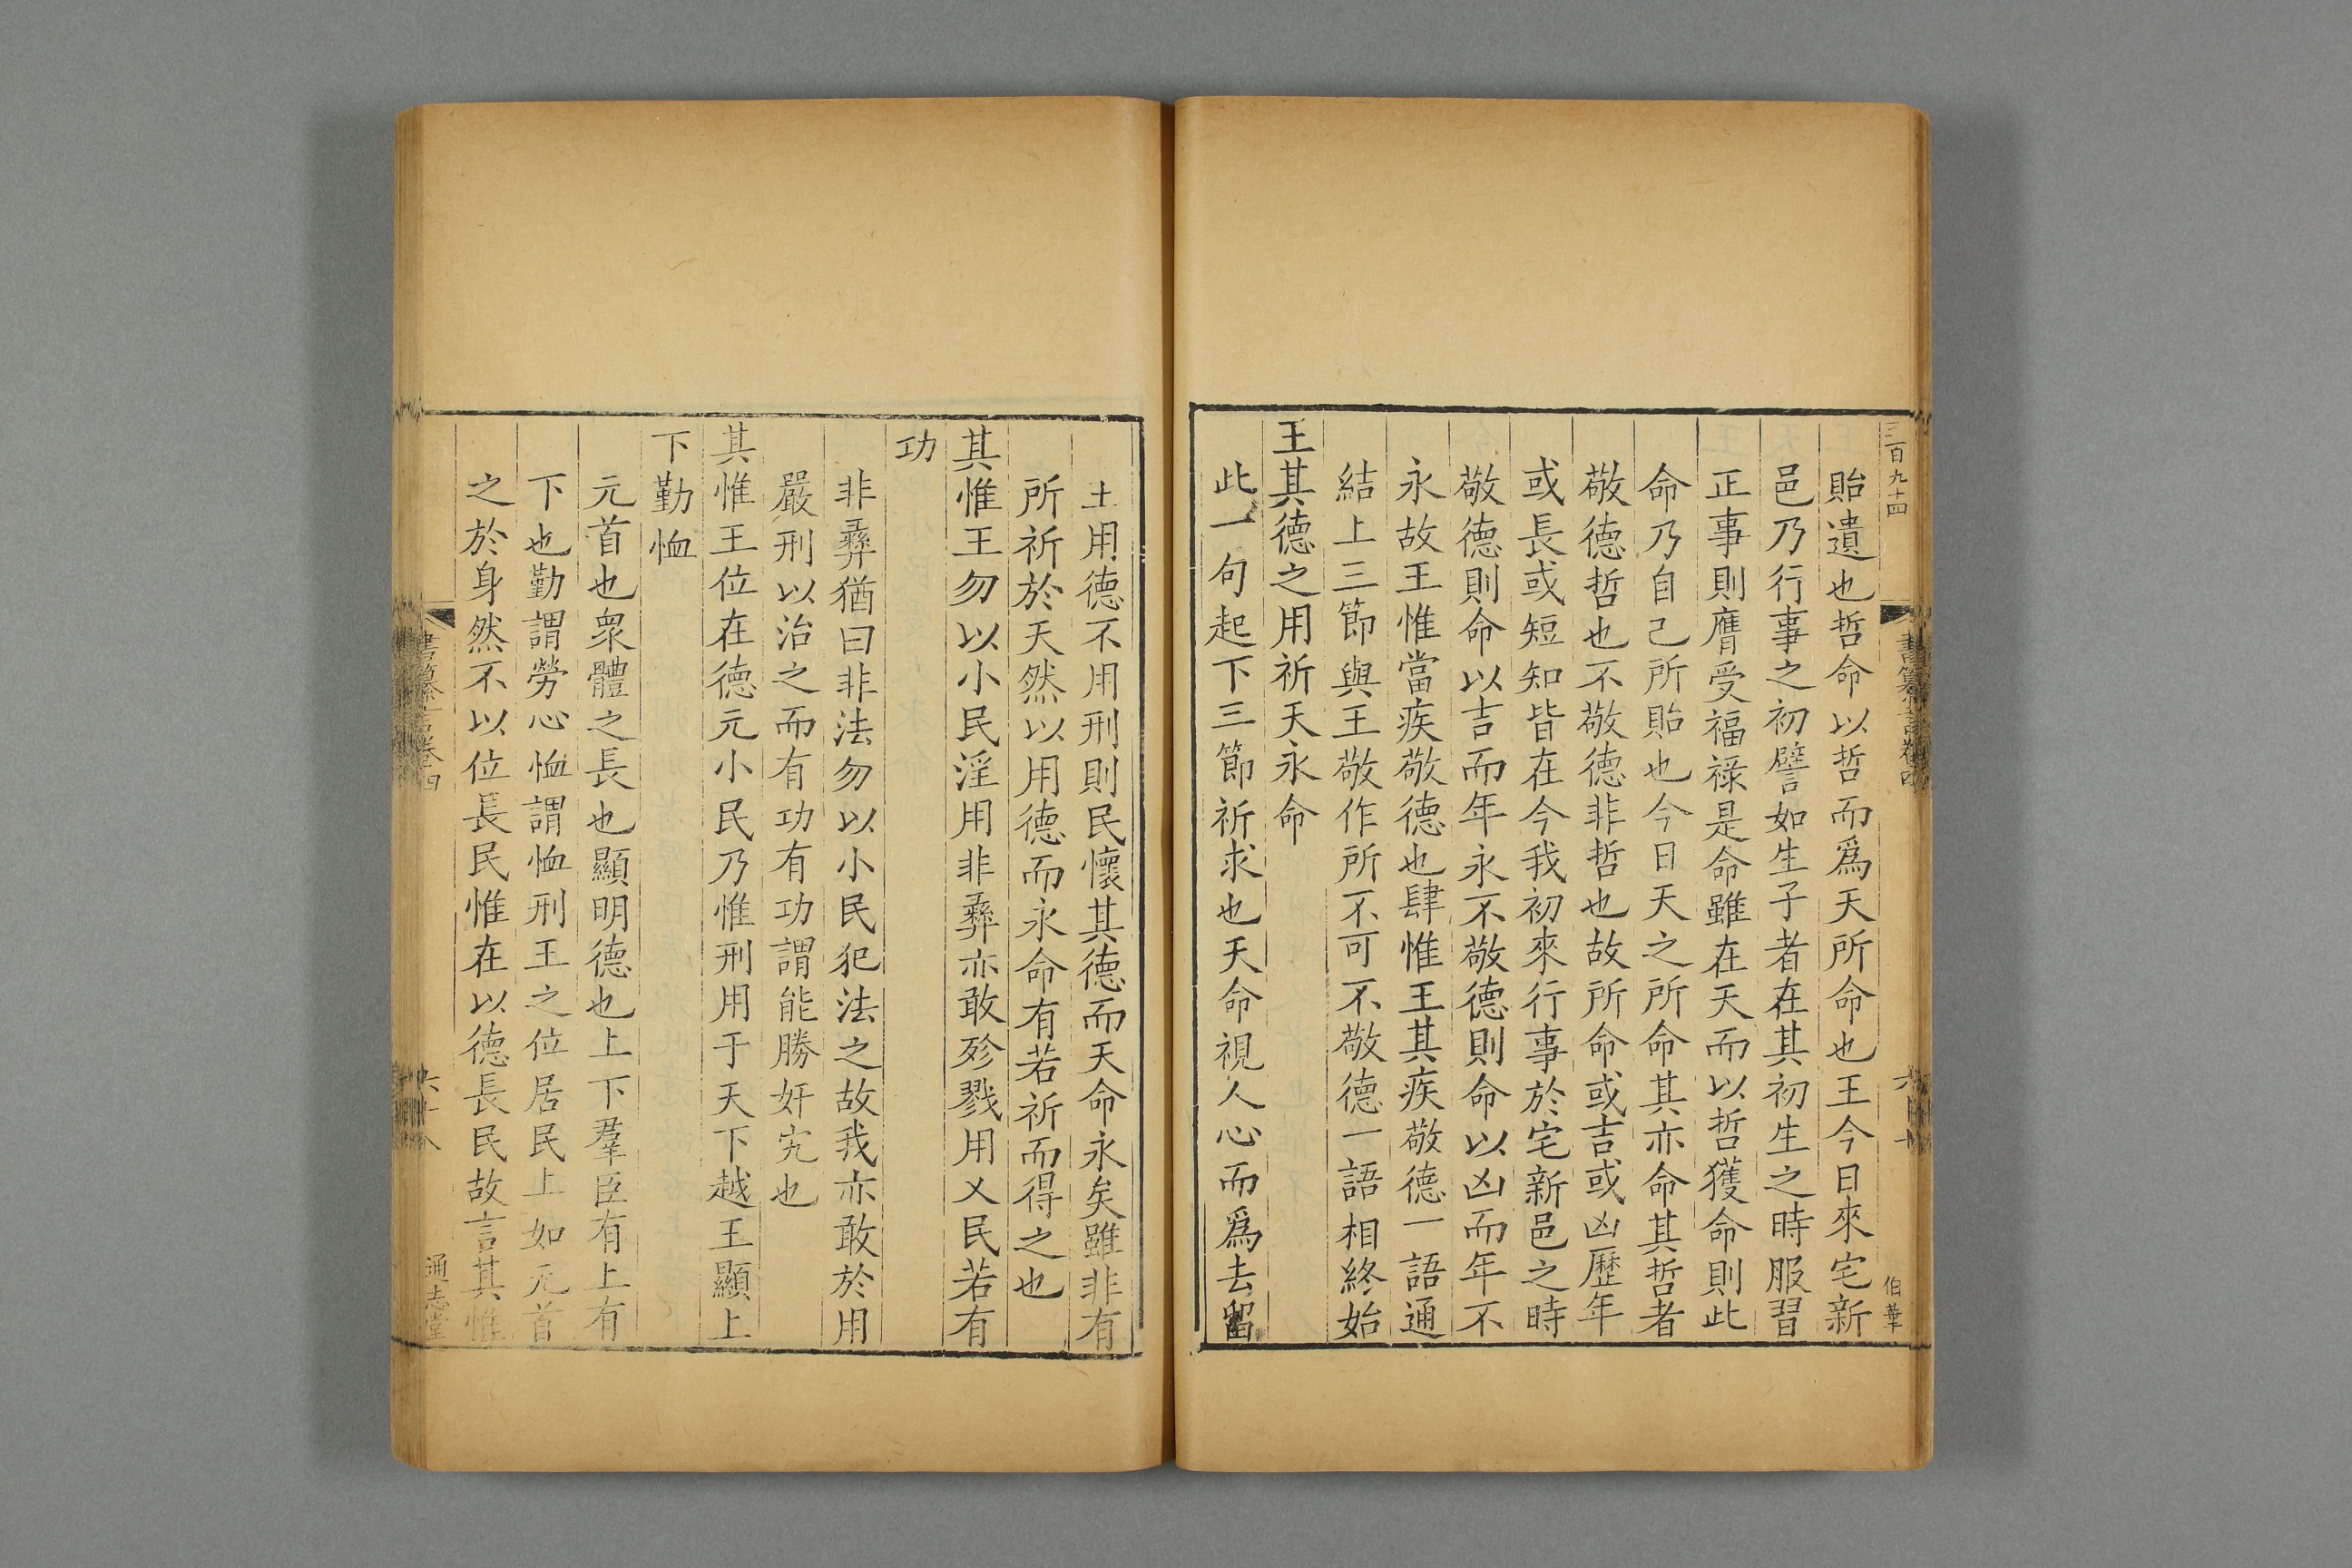 三百九十四
書纂言卷四
伯華
貽遺也哲命以哲而爲天所命也王今日來宅新
邑乃行事之初譬如生子者在其初生之時服習
正事則膺受福祿是命雖在天而以哲獲命則此
命乃自己所貽也今日天之所命其亦命其哲者
敬德哲也不敬德非哲也故所命或吉或凶歷年
或長或短知皆在今我初來行事於宅新邑之時
敬德則命以吉而年永不敬德則命以凶而年不
永故王惟當疾敬德也肆惟王其疾敬德一語通
結上三節與王敬作所不可不敬德一語相終始
王其德之用祈天永命
此一句起下三節祈求也天命視人心而爲去留
王用德不用刑則民懷其德而天命永矣雖非有
所祈於天然以用德而永命有若祈而得之也
其惟王勿以小民淫用非彞亦敢殄戮用乂民若有
功
非彞猶曰非法勿以小民犯法之故我亦敢於用
嚴刑以治之而有功有功謂能勝奸宄也
其惟王位在德元小民乃惟刑用于天下越王顯上
下勤恤
元首也衆體之長也顯明德也上下羣臣有上有
下也勤謂勞心恤謂恤刑王之位居民上如元首
之於身然不以位長民惟在以德長民故言其惟
書纂言卷四
六十八
通志堂